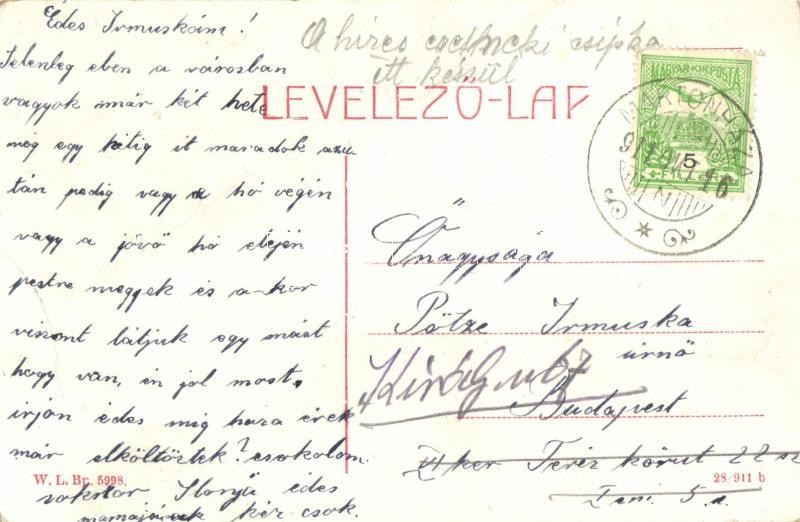 Edes Irmuskám!
Jelenleg eben a városban
vagyok már két hete
még egy hétig it maradok azu
tán pedig vagy a hó végén
vagy a jövő hó elején
pestre megyek és a-kor
viszont látjuk egy mást
hogy van, én jol most.
irjon édes mig haza érek
már elköltöztek? csokolom
sokszor Ilonji édes
mamajának kéz csok.
A híres csetneki csipka
itt készül
LEVELEZŐ-LAP
MAGYAR KIR. POSTA
5
MARTONHÁZA
Őnagysága
Pötze Irmuska
úrnő
Király u 67
Budapest
VI ker Teréz körut 22 sz
I em. 5 a.
W. L. Bp. 5998.
28 911 b